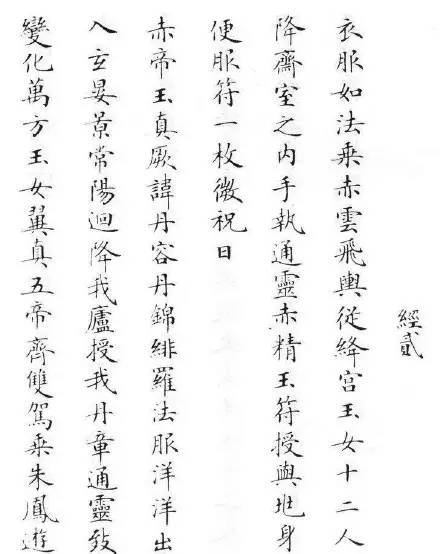 經貳
衣服如法乘赤雲飛輿從絳宮玉女十二人
降齋室之内手執通靈赤精玉符授與兆身
便服符一枚微祝曰
赤帝玉真厥諱丹容丹錦緋羅法服洋洋出
入玄晏景常陽迴降我廬授我丹章通靈致
變化萬方玉女翼真五帝齊雙駕乘朱鳳遊